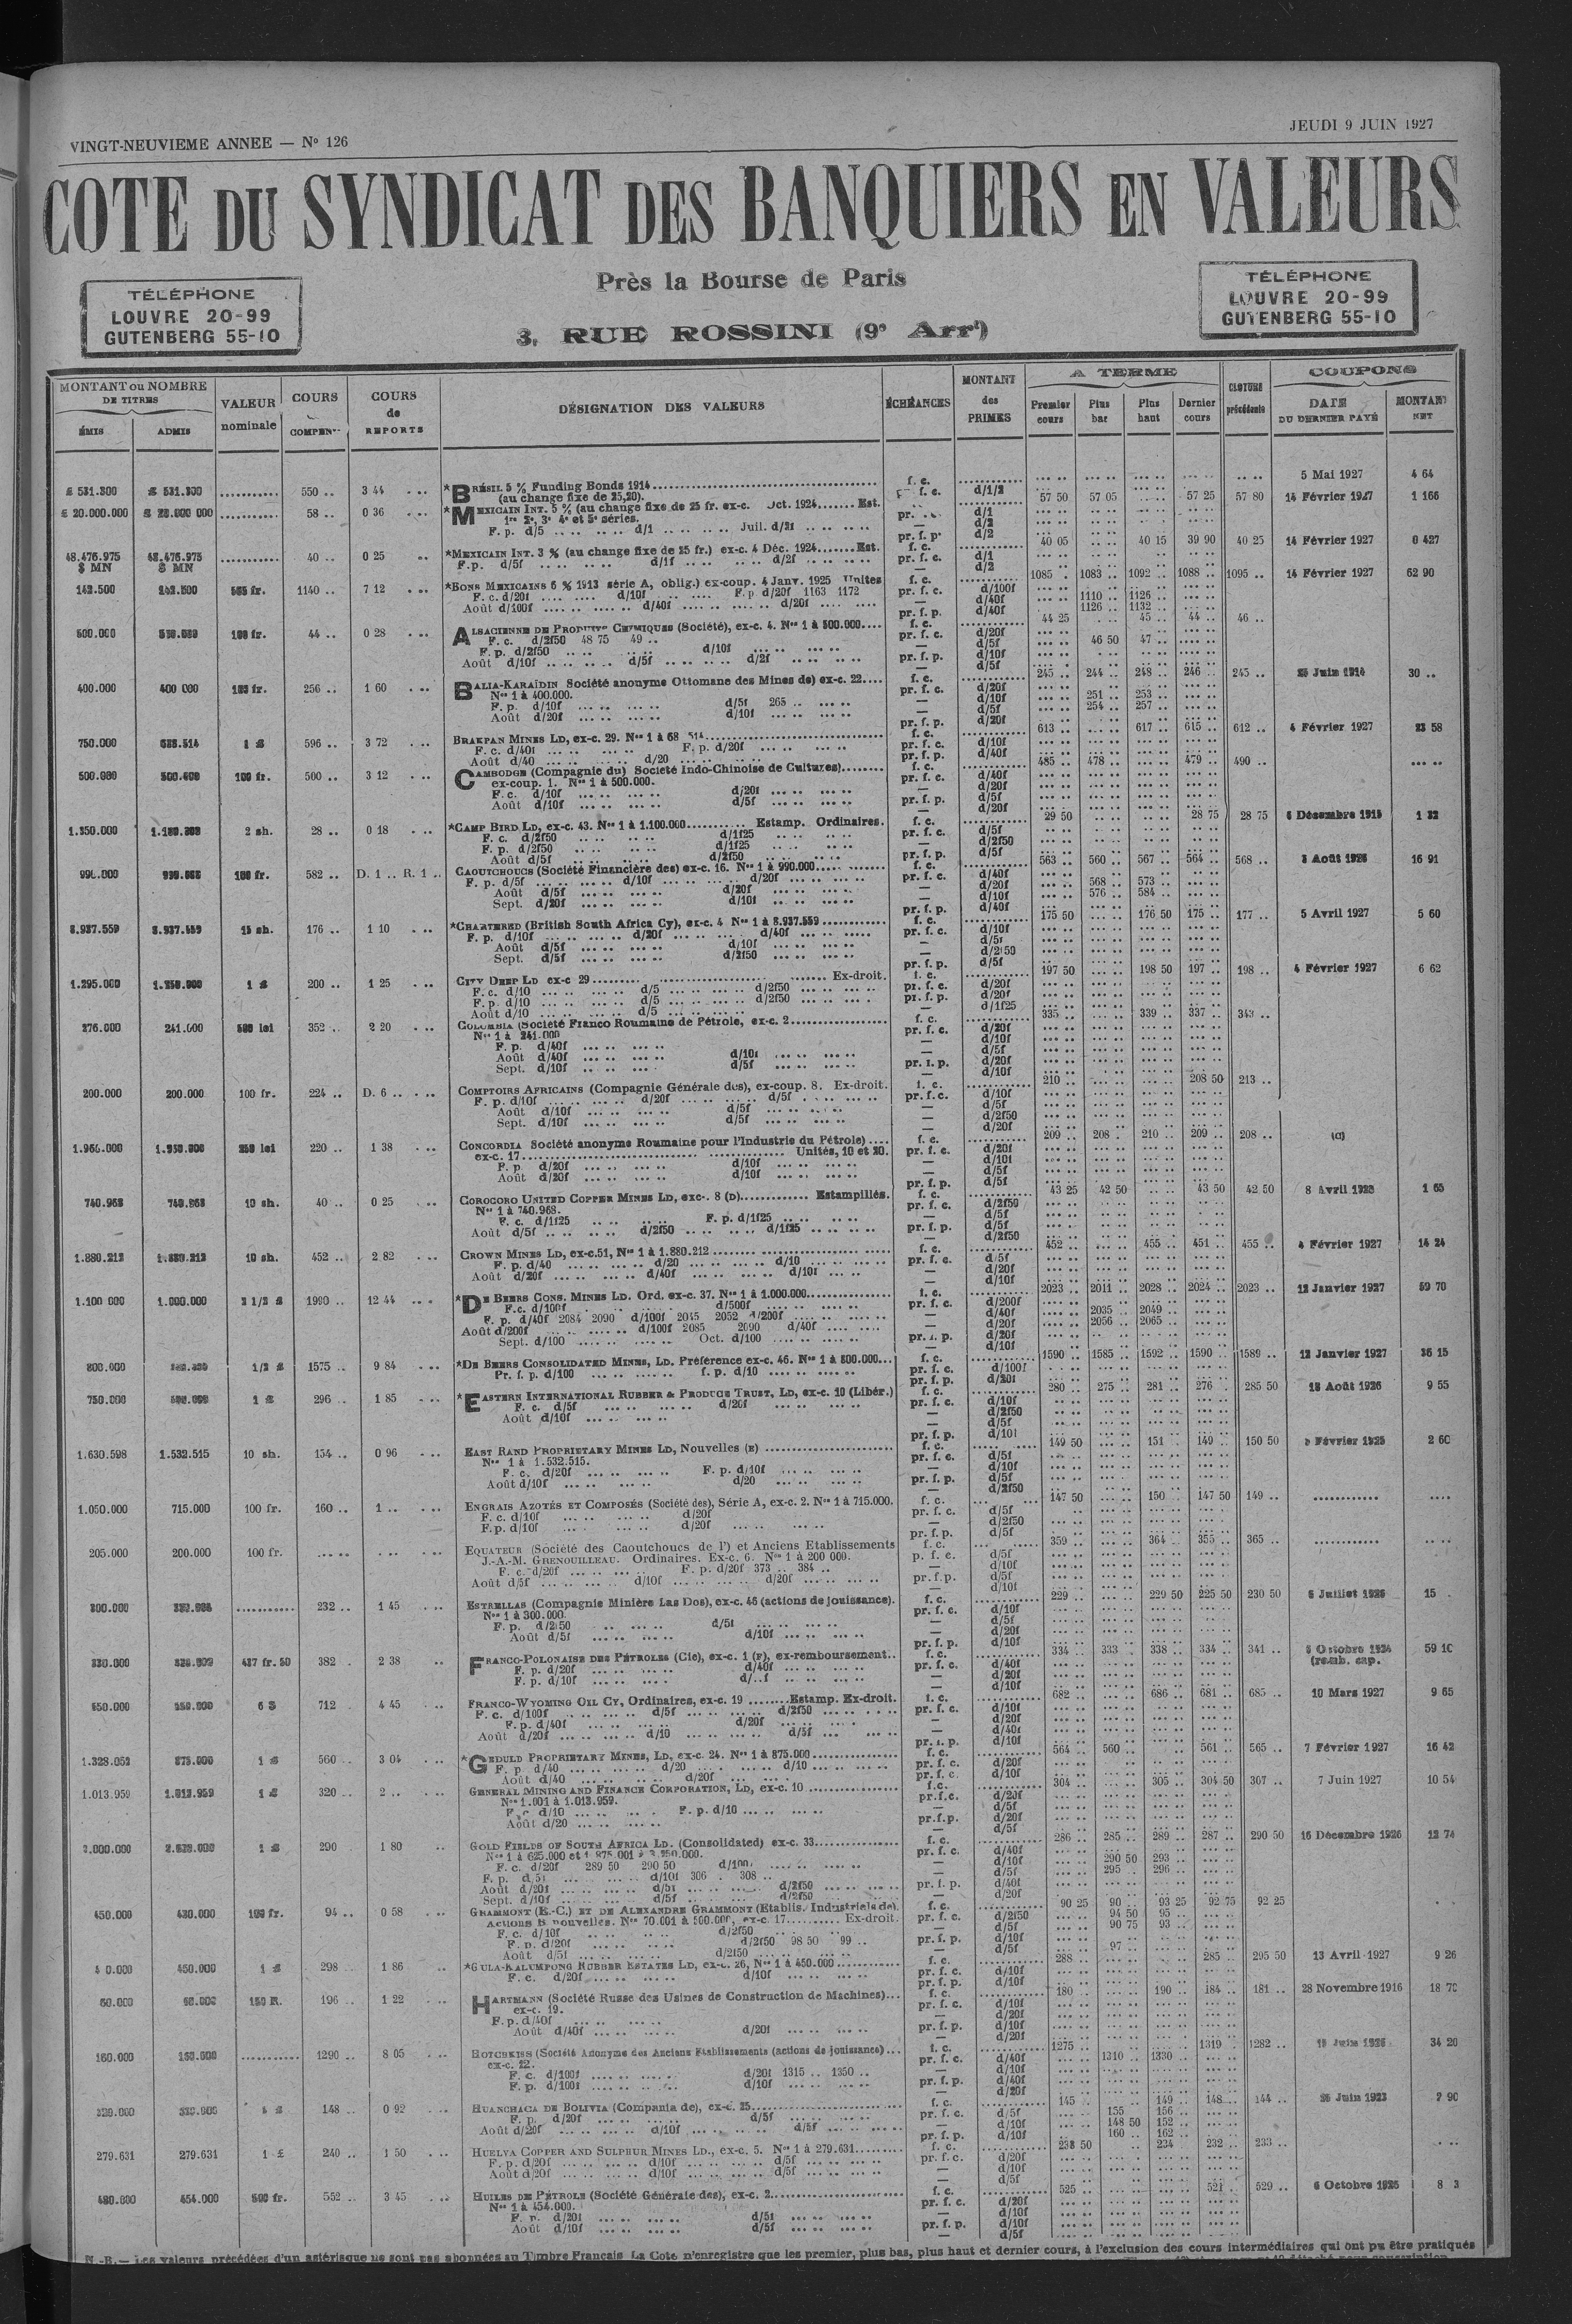 VINGT-NEUVIEME ANNEE — Nº 126
JEUDI 9 JUIN 1927
COTE DU SYNDICAT DES BANQUIERS EN VALEURS
Près la Bourse de Paris
3, RUE ROSSINI (9e Arrt)
TÉLÉPHONE
LOUVRE 20-99
GUTENBERG 55-10
TÉLÉPHONE
LOUVRE 20-99
GUTENBERG 55-10
MONTANT ou NOMBRE DE TITRES
ÉMIS
ADMIS
VALEUR nominale
COURS COMPEN
COURS de REPORTS
DÉSIGNATION DES VALEURS
ÉCHÉANCES
MONTANT des PRIMES
A TERME
Premier cours
Plus bas
Plus haut
Dernier cours
CLOTURE précédente
COUPONS
DATE DU DERNIER PAYÉ
MONTANT NET
£ 531.300 £ 531.300 550 .. 3 44 *BRÉSIL 5 % Funding Bonds 1914 f. c. 5 Mai 1927 4 64
(au change fixe de 25,20). d/1/2
£ 20.000.000 58 .. 0 36 *MEXICAIN INT. 5 % (au change fixe de 25 fr. ex-c. Oct. 1924 Est. 57 50 57 05 57 25 57 80 14 Février 1927 1 166
1re 2e 3e 4e et 5e séries. d/1
F. p. d/5 d/1 Juil. d/2f
48.476.975 48.476.975 40 .. 0 25 *MEXICAIN INT. 3 % (au change fixe de 25 fr.) ex-c. 4 Déc. 1924 Est. f. c. 40 05 40 15 39 90 40 25 14 Février 1927 0 427
$ MN $ MN F.p. d/5f d/1f d/2f pr. f. c. d/1
142.500 1140 .. 7 12 *BONS MEXICAINS 6 % 1913 série A, oblig.) ex-coup. 4 Janv. 1925 Unités f. c. 1085 1083 1092 1088 1095 14 Février 1927 62 90
F. c. d/20f d/10f F.p d/20f 1163 1172 pr. f. c. d/100f
Août d/100f d/40f d/20f d/40f 1110 1126
pr. f. p. d/40f 1126 1132
500.000 100 fr. 44 .. 0 28 ALSACIENNE DE PRODUITS CHIMIQUES (Société), ex-c. 4. Nos 1 à 500.000 f. c. 44 25 45 44 46
F. c. d/2f50 48 75 49 pr. f. c. d/20f
F. p. d/2f50 d/10f d/5f 46 50 47
Août d/10f d/5f d/2f pr. f. p. d/10f
400.000 400 000 256 .. 1 60 BALIA-KARAÏDIN Société anonyme Ottomane des Mines de) ex-c. 22 f. c. 245 244 248 246 245 30 ..
Nos 1 à 400.000. pr. f. c. d/20f
F. p. d/10f d/5f 265 d/10f 251 253
Août d/20f d/10f d/5f 254 257
750.000 1 £ 596 .. 3 72 BRAKPAN MINES LD, ex-c. 29. Nos 1 à 68 514 f. c. 613 617 615 612 4 Février 1927 23 58
F. c. d/40f F. p. d/20f pr. f. c. d/10f
Août d/40 d/20 pr. f. p. d/40f
500.000 100 fr. 500 .. 3 12 CAMBODGE (Compagnie du) Société Indo-Chinoise de Cultures) f. c. 485 478 479 490
ex-coup. 1. Nos 1 à 500.000. pr. f. c. d/40f
F. c. d/10f d/20f d/20f
Août d/10f d/5f pr. f. p. d/5f
2 sh. 28 .. 0 18 *CAMP BIRD LD, ex-c. 43. Nos 1 à 1.100.000 Estamp. Ordinaires. f. c. 29 50 28 75 28 75 1 32
F. c. d/2f50 d/1f25 pr. f. c. d/5f
F. p. d/2f50 d/1f25 d/2f50
Août d/5f d/2f50 pr. f. p. d/5f
100 fr. 582 .. D. 1 .. R. 1 .. CAOUTCHOUCS (Société Financière des) ex-c. 16. Nos 1 à 990.000 f. c. 563 560 567 564 568 16 91
F. p. d/5f d/10f d/20f pr. f. c. d/40f
Août d/5f d/20f d/20f 568 573
Sept. d/20f d/10f d/10f 576 584
8.937.559 8.937.559 15 sh. 176 .. 1 10 *CHARTERED (British South Africa Cy), ex-c. 4 Nos 1 à 8.937.559 f. c. 175 50 176 50 175 177 5 Avril 1927 5 60
F. p. d/10f d/20f d/40f pr. f. c. d/10f
Août d/5f d/10f d/5f
Sept. d/5f d/2f50
1.295.000 1 £ 200 .. 1 25 CITY DEEP LD ex-c 29 Ex-droit. f. c. 197 50 198 50 197 198 4 Février 1927 6 62
F. c. d/10 d/5 d/2f50 pr. f. c. d/20f
F. p. d/10 d/5 d/2f50 pr. f. p. d/20f
Août d/10 d/5 d/1f25
276.000 241.000 500 lei 352 .. 2 20 COLOMBIA (Société Franco Roumaine de Pétrole, ex-c. 2 f. c. 335 339 337 343
Nos 1 à 241.000 pr. f. c. d/20f
F. p. d/40f d/10f
Août d/40f d/10f d/5f
Sept. d/10f d/5f pr. f. p. d/20f
200.000 200.000 100 fr. 224 .. D. 6 .. COMPTOIRS AFRICAINS (Compagnie Générale des), ex-coup. 8. Ex-droit. f. c. 210 208 50 213
F. p. d/10f d/20f d/5f pr. f. c. d/10f
Août d/10f d/5f d/5f
Sept. d/10f d/5f d/2f50
250 lei 220 .. 1 38 CONCORDIA Société anonyme Roumaine pour l'Industrie du Pétrole) f. c. 209 208 210 209 208 (C)
ex-c. 17 Unités, 10 et 20. pr. f. c. d/20f
F. p. d/20f d/10f d/10f
Août d/20f d/10f d/5f
740.968 740.968 10 sh. 40 .. 0 25 COROCORO UNITED COPPER MINES LD, exc-. 8 (D) Estampillés. f. c. 43 25 42 50 43 50 42 50 1 65
Nos 1 à 740.968. d/2f50
F. c. d/1f25 F. p. d/1f25 d/5f
Août d/5f d/2f50 d/1f25 pr. f. p. d/5f
1.880.212 10 sh. 452 .. 2 82 CROWN MINES LD, ex-c.51, Nos 1 à 1.880.212 f. c. 452 455 451 455 4 Février 1927 14 24
F. p. d/40 d/20 d/10 pr. f. c. d/5f
Août d/20f d/40f d/10f d/20f
1.100 000 1.000.000 2 1/2 £ 1990 .. 12 44 *DE BEERS CONS. MINES LD. Ord. ex-c. 37. Nos 1 à 1.000.000 f. c. 2023 2011 2028 2024 2023 12 Janvier 1927 59 70
F.c. d/100f d/500f pr. f. c. d/200f
F. p. d/40f 2084 2090 d/100f 2045 2052 d/200f d/40f 2035 2049
Août d/200f d/100f 2085 2090 d/40f d/20f 2056 2065
Sept. d/100 Oct. d/100 d/20f
800.000 1/2 £ 1575 .. 9 84 *DE BEERS CONSOLIDATED MINES, LD. Préférence ex-c. 46. Nos 1 à 800.000 f. c. 1590 1585 1592 1590 1589 12 Janvier 1927 36 15
Pr. f. p. d/100 f. p. d/10 pr. f. c. d/100f
750.000 1 £ 296 .. 1 85 *EASTERN INTERNATIONAL RUBBER & PRODUCE TRUST, LD, ex-c. 10 (Libér.) f. c. 280 275 281 276 285 50 18 Août 1926 9 55
F. c. d/5f d/20f pr. f. c. d/10f
Août d/10f d/2f50
1.630.598 1.532.515 10 sh. 154 .. 0 96 EAST RAND PROPRIETARY MINES LD, Nouvelles (E) f. c. 149 50 151 149 150 50 2 60
Nos 1 à 1.532.515. pr. f. c. d/5f
F. c. d/20f F. p. d/10f d/10f
Août d/10f d/20 pr. f. p. d/5f
1.050.000 715.000 100 fr. 160 .. 1 .. ENGRAIS AZOTÉS ET COMPOSÉS (Société des), Série A, ex-c. 2. Nos 1 à 715.000. f. c. 147 50 150 147 50 149
F. c. d/10f d/20f pr. f. c. d/5f
F.p. d/10f d/20f d/2f50
205.000 200.000 100 fr. EQUATEUR (Société des Caoutchoucs de l') et Anciens Etablissements f. c. 359 364 355 365
J.-A.-M. GRENOUILLEAU. Ordinaires. Ex-c. 6. Nos 1 à 200 000. p. f. c. d/5f
F. c. d/20f F. p. d/20f 373 384 d/10f
Août d/5f d/10f d/20f pr. f. p. d/5f
300.000 232 .. 1 45 ESTRELLAS (Compagnie Minière Las Dos), ex-c. 46 (actions de jouissance). f. c. 229 229 50 225 50 230 50 6 Juillet 1926 15
Nos 1 à 300.000. pr. f. c. d/10f
F. p. d/2f50 d/5f d/5f
Août d/5f d/10f d/20f
437 fr. 50 382 2 38 FRANCO-POLONAISE DES PÉTROLES (Cie), ex-c. 1 (F), ex-remboursement f. c. 334 333 338 334 341 59 10
F. p. d/20f d/40f pr. f. c. d/40f (remb. cap.
F. p. d/10f d/20f
6 $ 712 4 45 FRANCO-WYOMING OIL CY, Ordinaires, ex-c. 19 Estamp. Ex-droit. f. c. 682 686 681 685 10 Mars 1927 9 65
F. c. d/100f d/5f d/2f50 pr. f. c. d/10f
F. p. d/40f d/20f d/20f
Août d/20f d/10 d/5f d/40f
1.328.052 875.000 1 £ 560 3 04 *GEDULD PROPRIETARY MINES, LD, ex-c. 24. Nos 1 à 875.000 f. c. 564 560 561 565 7 Février 1927 16 42
F. p d/40 d/20 d/10 pr. f. c. d/20f
Août d/40 d/20f pr. f. c. d/10f
1.013.959 1.013.959 1 £ 320 2 .. GENERAL MINING AND FINANCE CORPORATION, LD, ex-c. 10 f.c. 304 305 304 50 307 7 Juin 1927 10 54
Nos 1.001 à 1.013.959. pr.f.c. d/20f
F. c d/10 F. p. d/10 d/5f
Août d/20 pr.f.p. d/20f
1 £ 290 1 80 GOLD FIELDS OF SOUTH AFRICA LD. (Consolidated) ex-c. 33 f. c. 286 285 289 287 290 50 16 Décembre 1926 12 74
Nos 1 à 625.000 et 1 875.001 à 3.250.000. pr. f. c. d/40f
F. c. d/20f 289 50 290 50 d/10f d/10f 290 50 293
F. p. d/5f d/10f 306 308 d/5f 295 296
Août d/20f d/5f d/2f50 pr. f. p. d/40f
Sept. d/10f d/5f d/2f50 d/20f
450.000 430.000 100 fr. 94 .. 0 58 GRAMMONT (E.-C.) ET DE ALEXANDRE GRAMMONT (Etablis. Industriels de) f. c. 90 25 90 93 25 92 75 92 25
Actions B nouvelles. Nos 70.001 à 500.000, ex-c. 17 Ex-droit. pr. f. c. d/2f50 94 50 95
F. c. d/10f d/2f50 d/5f 90 75 93
F. p. d/20f d/2f50 98 50 99 pr. f. p. d/10f
Août d/5f d/2f50 d/5f 97
450.000 1 £ 298 1 86 *GULA-KALUMPONG RUBBER ESTATES LD, ex-c. 26, Nos 1 à 450.000 f. c. 288 285 295 50 13 Avril 1927 9 26
F. c. d/20f d/10f pr. f. c. d/10f
150 R. 196 1 22 HARTMANN (Société Russe des Usines de Construction de Machines) f. c. 180 190 184 181 28 Novembre 1916 18 70
ex-c. 19. pr. f. c. d/10f
F. p. d/40f d/20f
Août d/40f d/20f pr. f. p. d/10f
160.000 1290 .. 8 05 HOTCHKISS (Société Anonyme des Anciens Etablissements (actions de jouissance) f. c. 1275 1319 1282 34 20
ex-c. 22. pr. f. c. d/40f 1310 1330
F. c. d/100f d/20f 1315 1350 d/10f
F. p. d/100f d/10f pr. f. p. d/40f
148 .. 0 92 HUANCHACA DE BOLIVIA (Compania de), ex-c. 25 f. c. 145 149 148 144
F. p. d/20f d/5f pr. f. c. d/5f 155 156
Août d/20f d/10f d/5f d/10f 148 50 152
pr. f. p. d/10f 160 162
279.631 279.631 1 £ 240 .. 1 50 HUELVA COPPER AND SULPHUR MINES LD., ex-c. 5. Nos 1 à 279.631 f. c. 233 50 234 232 233
F. p. d/20f d/10f d/5f pr. f. c. d/20f
Août d/20f d/10f d/5f d/10f
480.000 454.000 500 fr. 552 .. 3 45 HUILES DE PÉTROLE (Société Générale des), ex-c. 2 f. c. 525 521 529 6 Octobre 1925
Nos 1 à 454.000. pr. f. c. d/20f
F. p. d/20f d/5f d/10f
Août d/10f d/5f pr. f. p. d/10f
N.-B. — Les valeurs précédées d'un astérisque ne sont pas abonnées au Timbre Français La Cote n'enregistre que les premier, plus bas, plus haut et dernier cours, à l'exclusion des cours intermédiaires qui ont pu être pratiqués